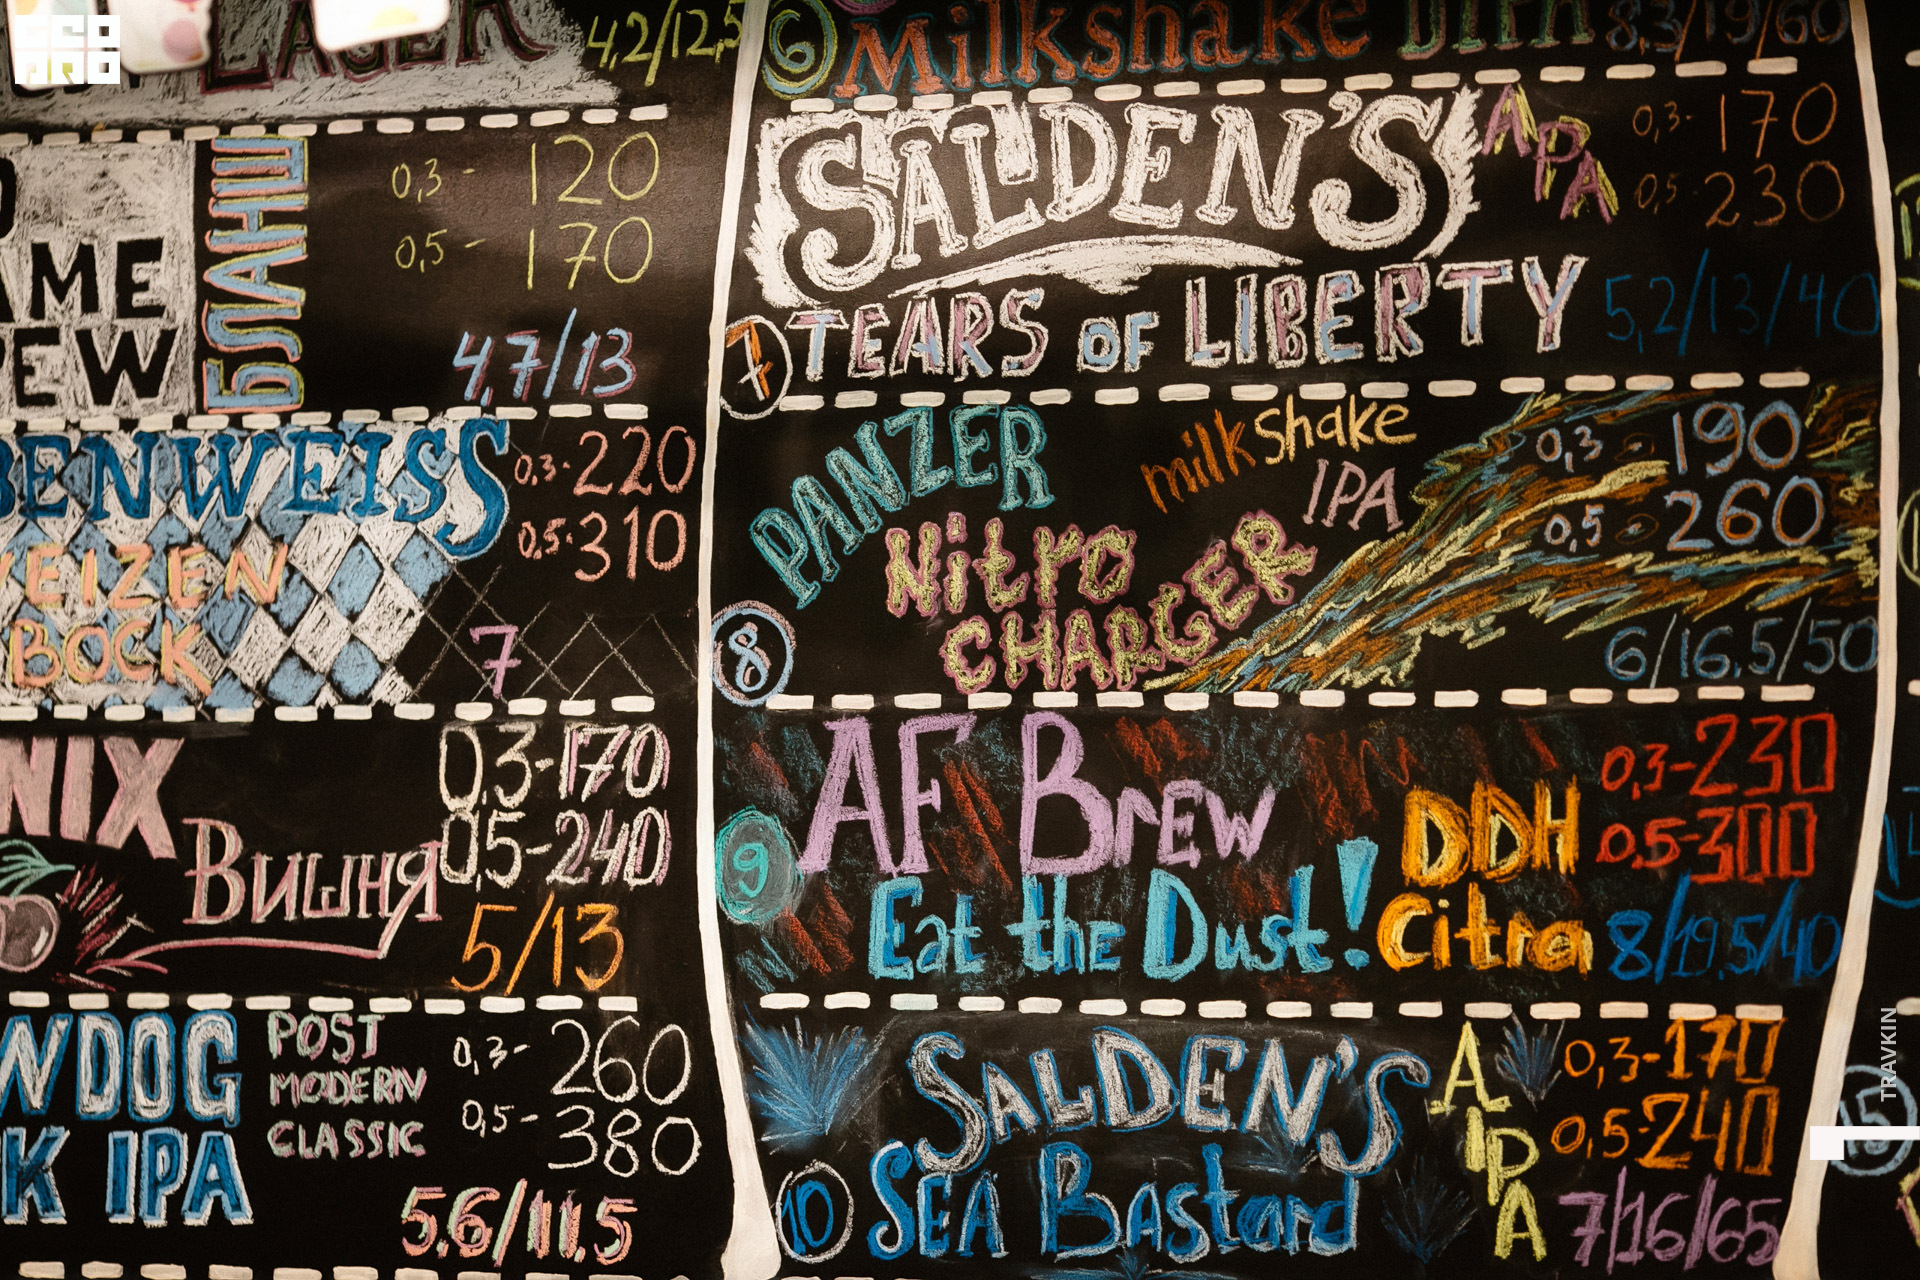 LAGER
4,2/12,5
AME
EW
БЛАНШ
0,3 - 120
0,5 - 170
4,7/13
BENWEISS
EIZEN
BOCK
0,3 - 220
0,5 - 310
7
NIX
Вишня
0,3 - 170
0,5 - 240
5/13
WDOG
K IPA
POST
MODERN
CLASSIC
0,3 - 260
0,5 - 380
5.6/11.5
6
Milkshake DIPA
8,3/19/60
SALDEN'S
APA
0,3 - 170
0,5 - 230
7
TEARS OF LIBERTY
5,2/13/40
PANZER
milkshake
IPA
Nitro
CHARGER
0,3 - 190
0,5 - 260
8
6/16.5/50
AF Brew
DDH
Citra
0,3 - 230
0,5 - 300
9
Eat the Dust!
8/19.5/40
SALDEN'S
AIPA
0,3 - 170
0,5 - 240
10
SEA Bastard
7/16/65
15
TRAVKIN